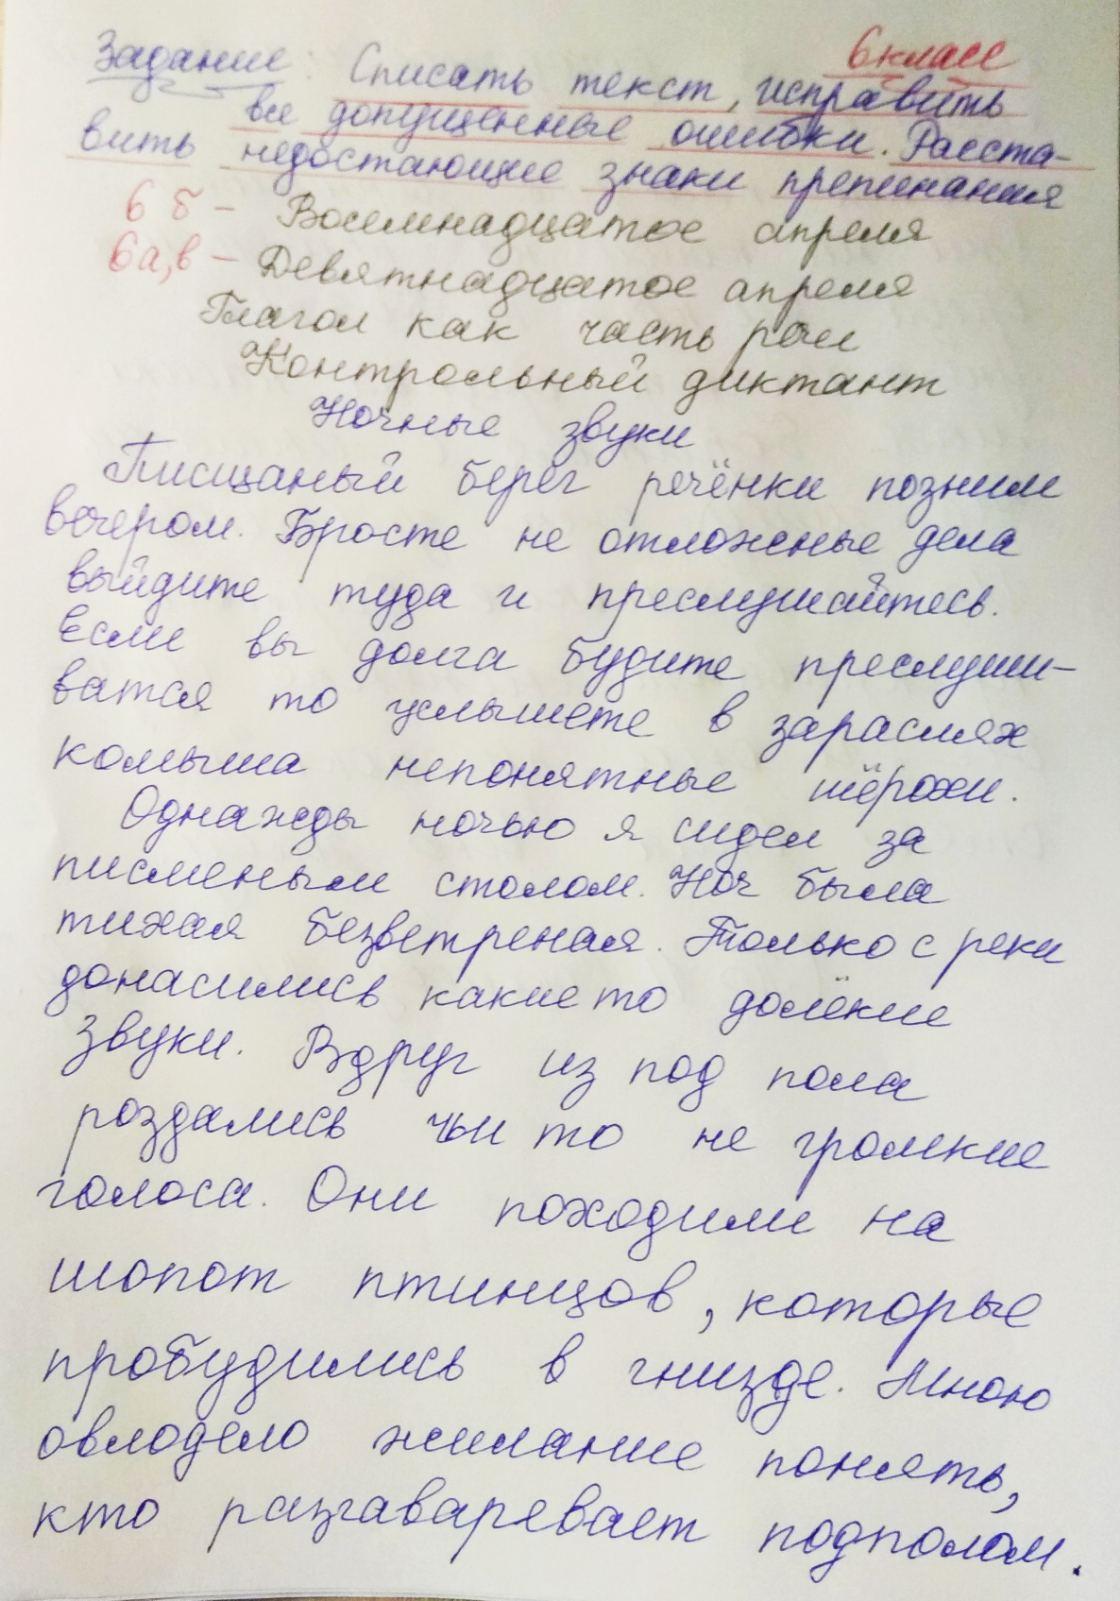 6 класс
Задание: Списать текст, исправить
все допущенные ошибки. Расста-
вить недостающие знаки препинания
6 б - Восемнадцатое апреля
6а,в - Девятнадцатое апреля
Глагол как часть речи
Контрольный диктант
Ночные звуки
Писщаный берег речёнки позним
вечером. Бросте не отложеные дела
выйдите туда и преслушайтесь.
Если вы долга будите преслуши-
ватся то услышете в зараслях
комыша непонятные шёрохи.
Однажды ночью я сидел за
писменым столом. Ноч была
тихая безветреная. Только с реки
донасились какие то долёкие
звуки. Вдруг из под пола
роздались чьи то не громкие
голоса. Они походили на
шопот птинцов, которые
пробудились в гнизде. Мною
овлодело жилание понять,
кто разгаваревает подполом.